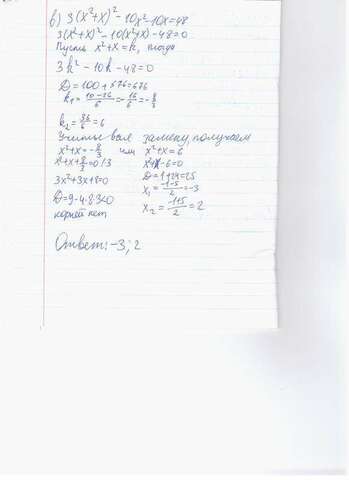 в) 3(x²+x)²-10x²-10x=48
3(x²+x)²-10(x²+x)-48=0
Пусть x²+x=k, тогда
3k²-10k-48=0
D=100+576=676
k₁=(10-26)/6=-16/6=-8/3
k₂=36/6=6
Учитывая замену, получаем
x²+x=-8/3 или x²+x=6
x²+x+8/3=0 |·3 x²+x-6=0
3x²+3x+8=0 D=1+24=25
D=9-4·8·3<0 x₁=(-1-5)/2=-3
корней нет x₂=(-1+5)/2=2
Ответ: -3; 2